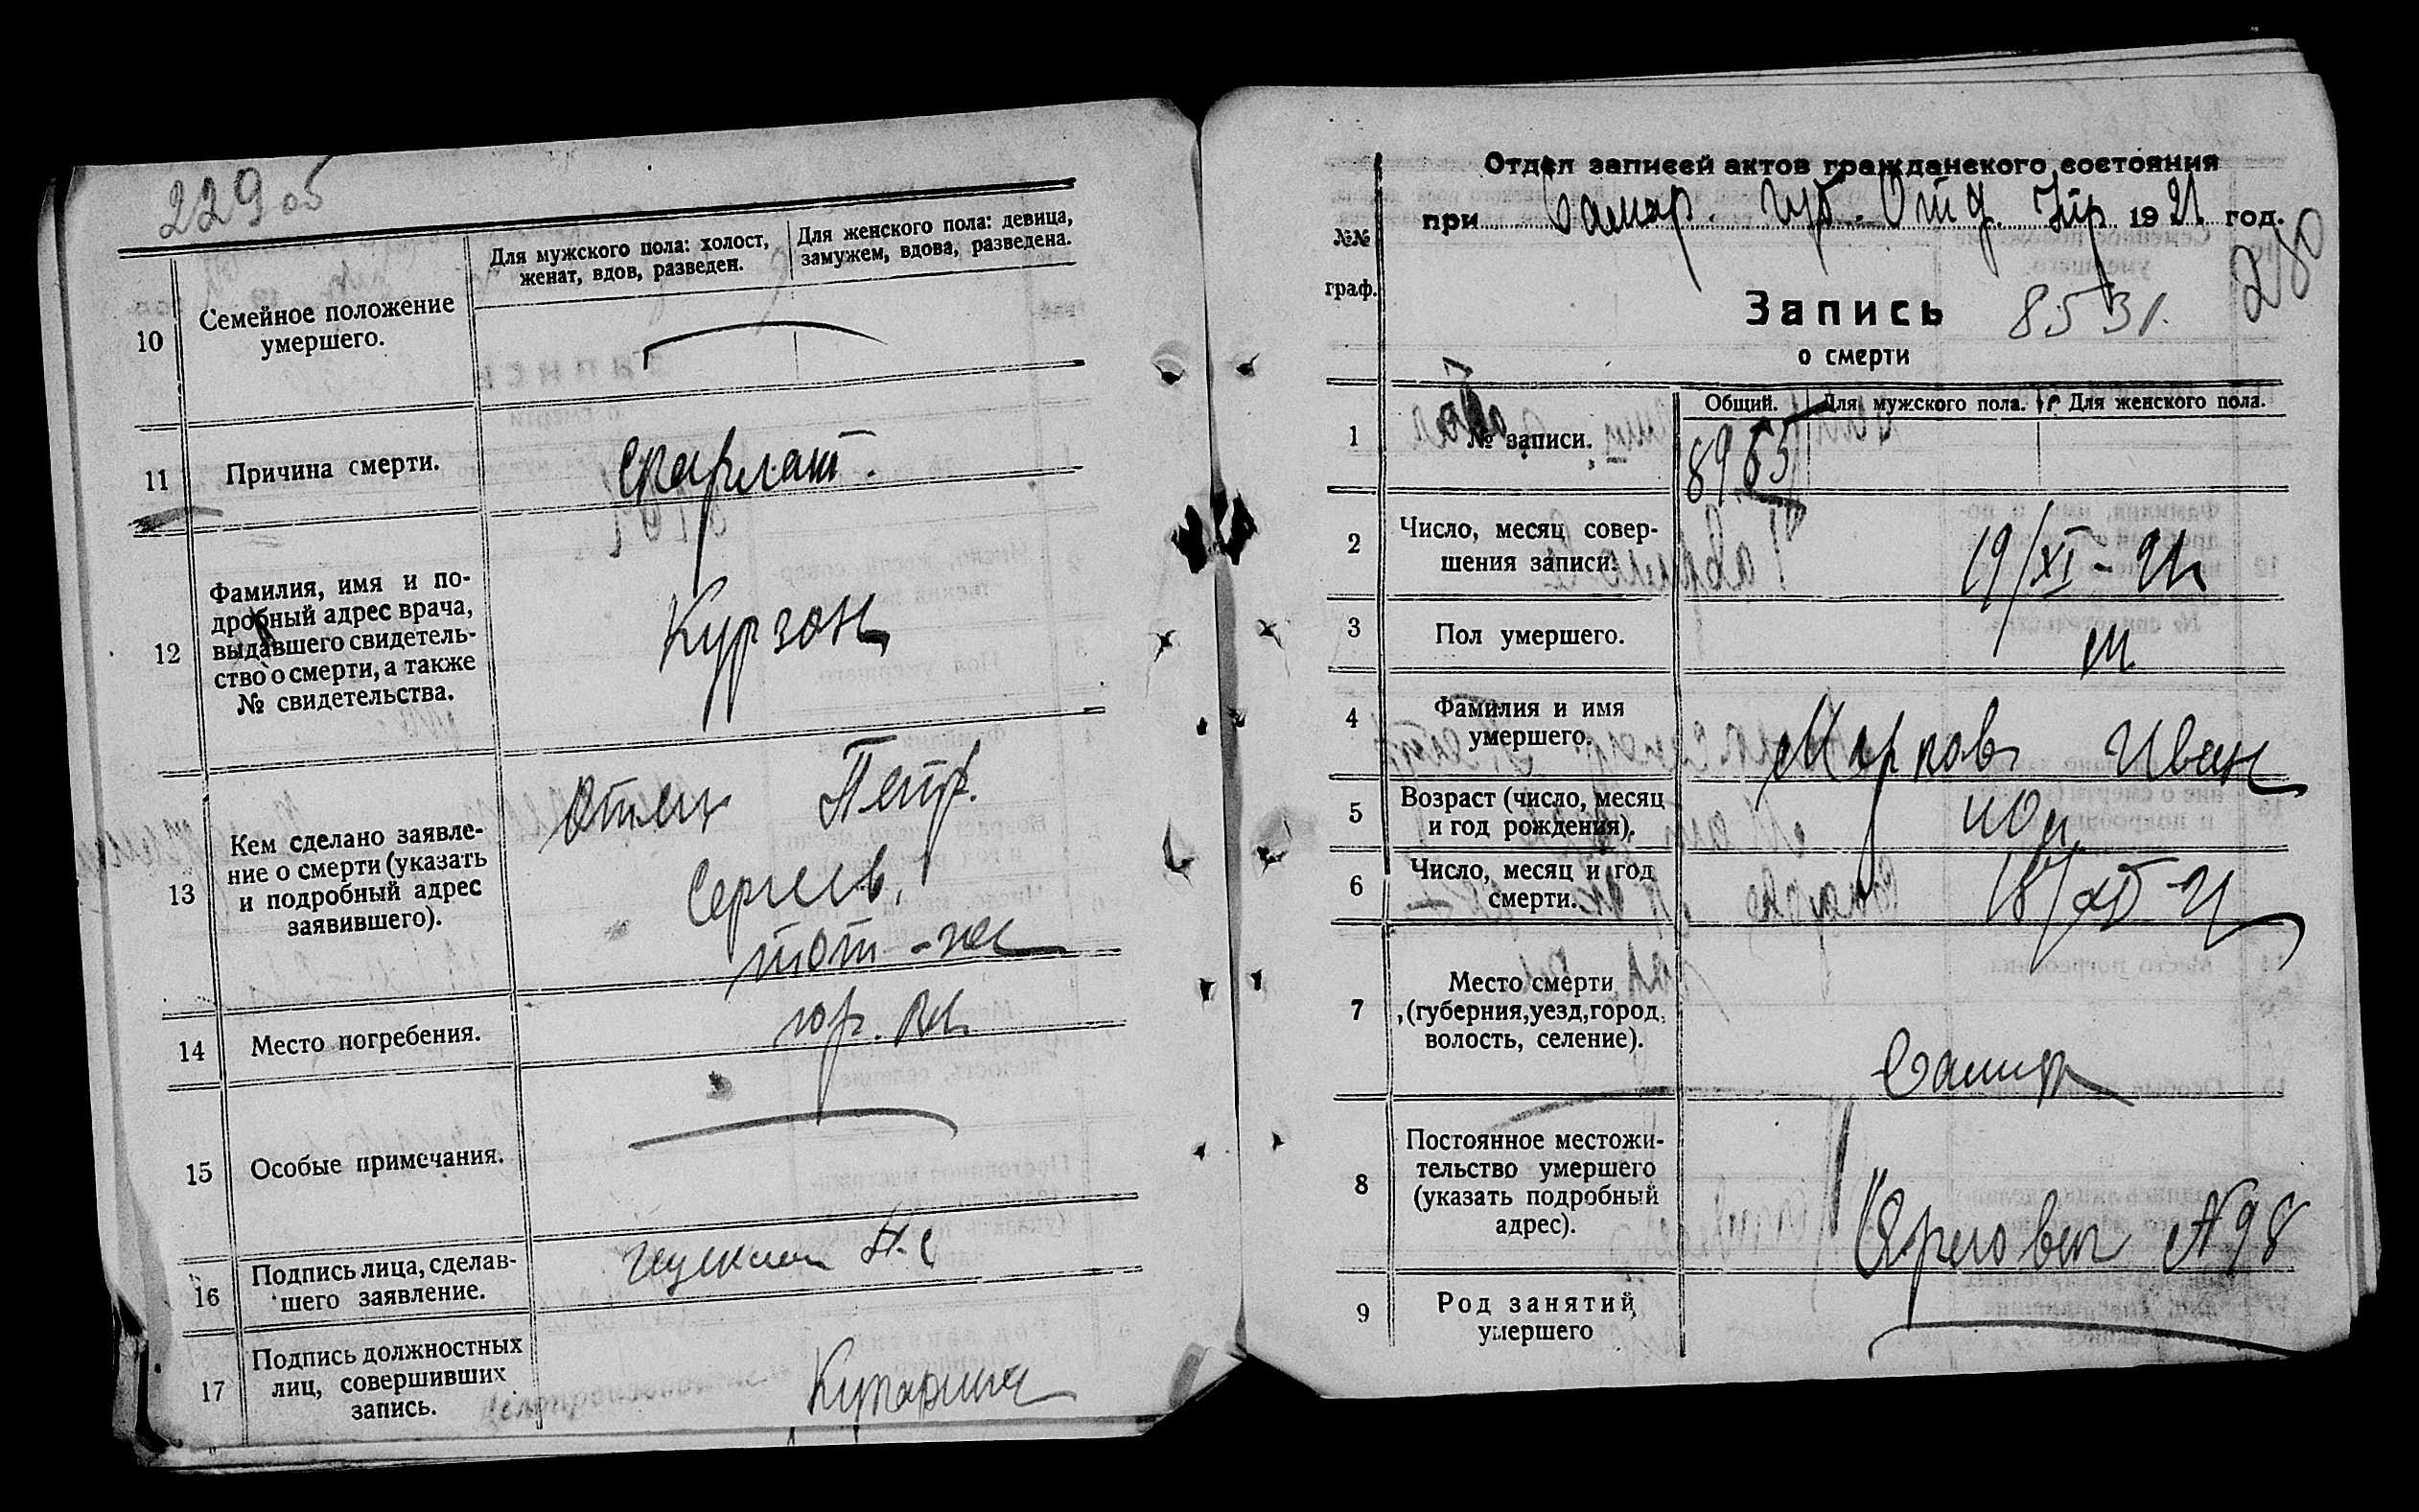 229 об
Для мужского пола: холост, женат, вдов, разведен.
Для женского пола: девица, замужем, вдова, разведена.
10 Семейное положение
умершего.
11 Причина смерти. Скарлат.
12 Фамилия, имя и по-
дробный адрес врача,
выдавшего свидетель-
ство о смерти, а также
№ свидетельства.
Курзон
13 Кем сделано заявле-
ние о смерти (указать
и подробный адрес
заявившего).
отец Петр
Сергеев.
тот-же
14 Место погребения. гор. кл.
15 Особые примечания.
16 Подпись лица, сделав-
шего заявление.
17 Подпись должностных
лиц, совершивших
запись.
Отдел записей актов гражданского состояния
при Самар. губ. Отд. Упр 1921 год.
230
№№
граф.
Запись 8531.
о смерти
Общий. Для мужского пола. Для женского пола.
1 № записи. 8965
2 Число, месяц совер-
шения записи. 19/XI-21
3 Пол умершего. м
4 Фамилия и имя
умершего. Марков Иван
5 Возраст (число, месяц
и год рождения).
6 Число, месяц и год
смерти. 18/XI-21
7 Место смерти
(губерния, уезд, город,
волость, селение).
Самар
8 Постоянное местожи-
тельство умершего
(указать подробный
адрес).
№ 98
9 Род занятий
умершего